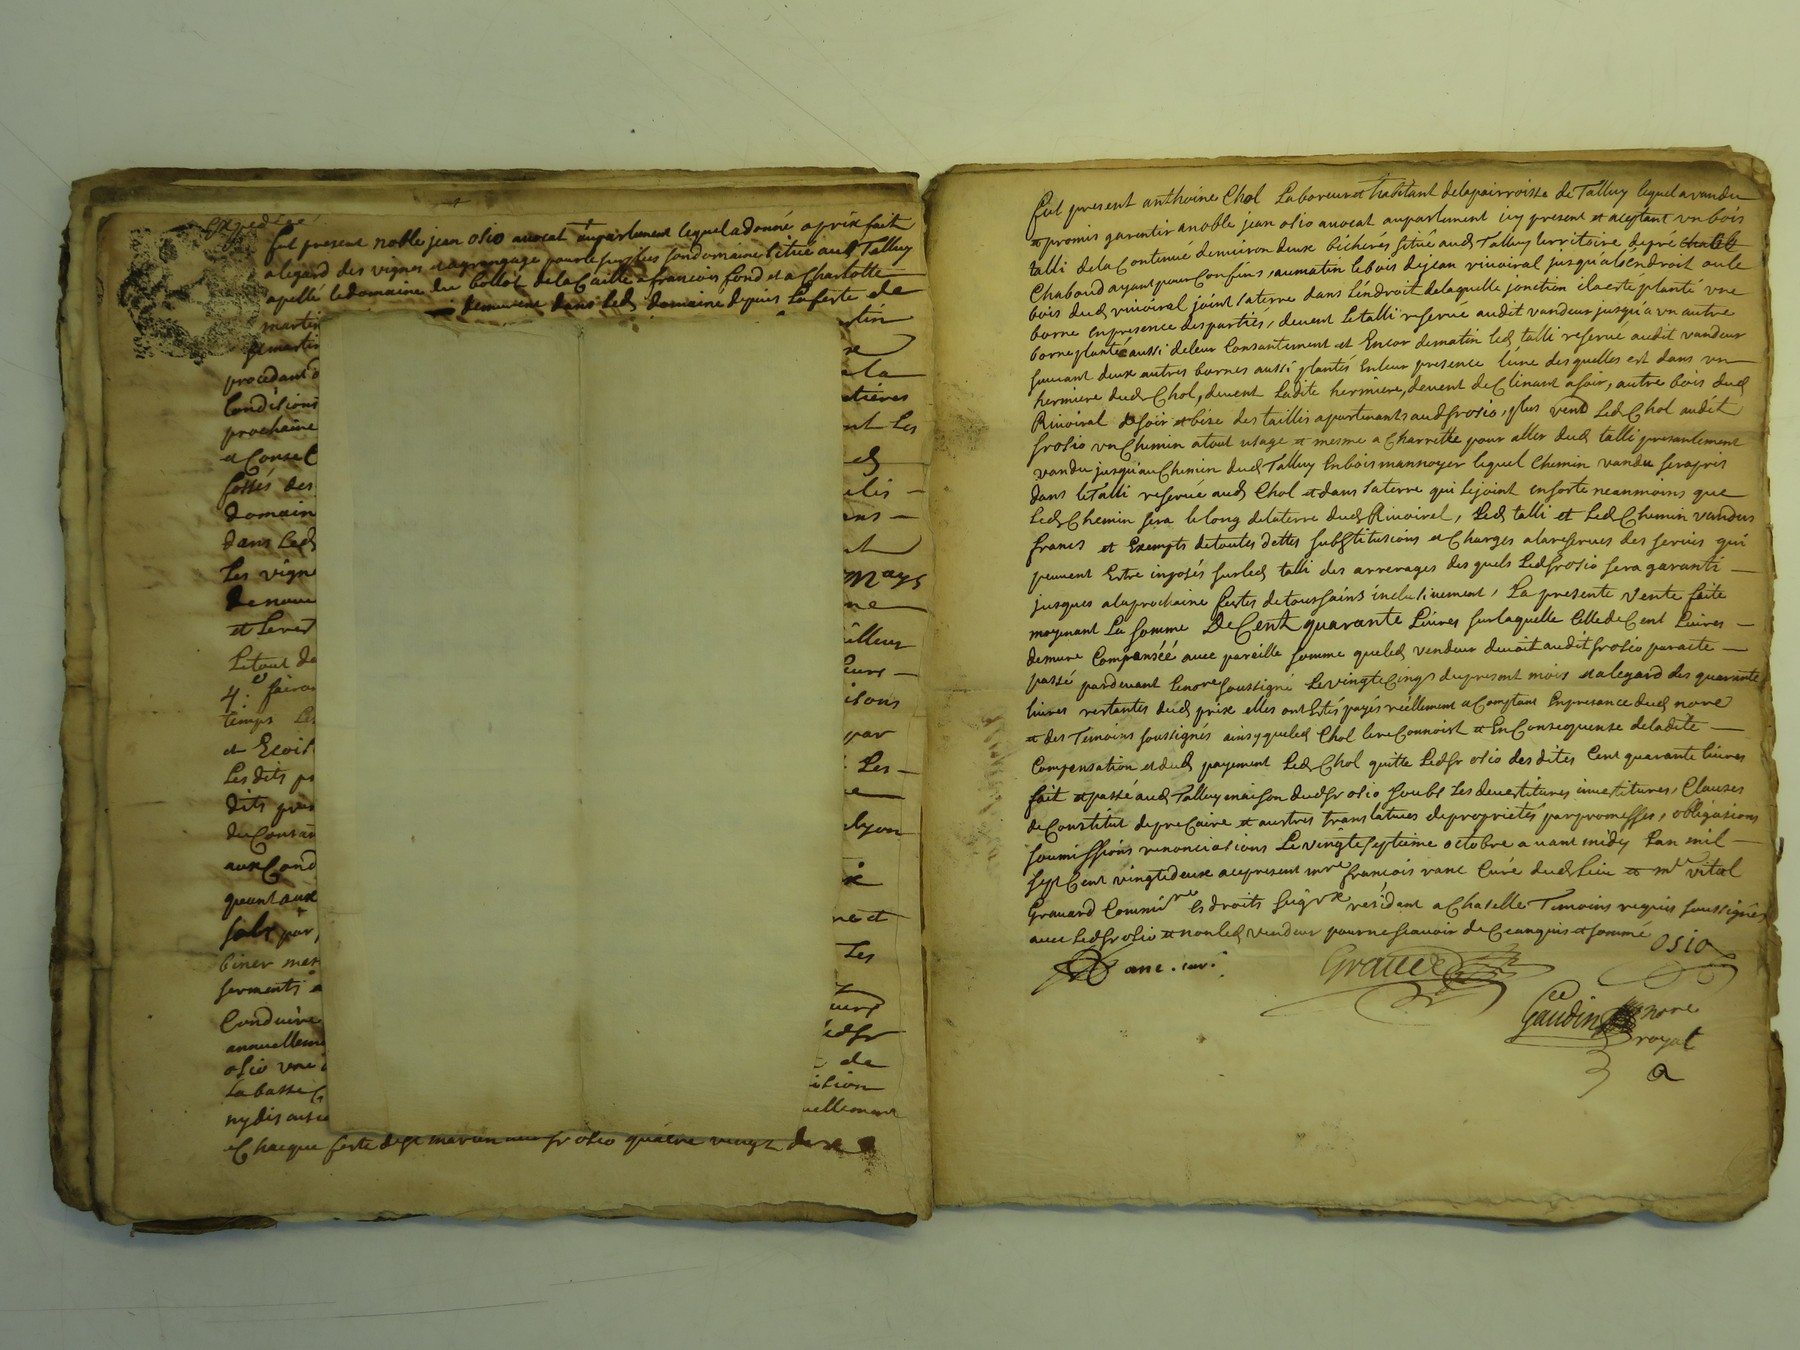 Expediée
fut present noble jean osio avocat au parlement lequel a donné a prix fait
a legard des vignes et a grangeage pour le surplus son domaine situé aud Talluy
apellé le domaine du bollot de la Caille a francois fond et a Charlotte
demeurant dans led domaine depuis la feste de
martin
st martin
procedant
Conditions
prochaine
et Conse
fossés des
domain
dans led
Les vigne
de nouve
et Lever
Le tout de
4.e fairon
temps Les
et Ecoi
Les dits p
dits
du Consan
aux Cond
quant aux
sols par
biner me
serments
Conduire
annuellem
osio une
La basse
ny dis
stin
a la
etières
nt Les
ed
elis
ans
et
Mays
ne
illeur
Leurs
isons
par
Les
ne
Lyon
ne et
Les
eurs
Ledsr
de
ision
uellement
Chacque feste de st martin aud sr osio quatre vingt dix
fut present anthoine Chol Laboreur et habitant de la pairroisse de Talluy lequel a vandu
et promis garentir a noble jean osio avocat au parlement icy present et aceptant un bois
talli de la Contenue d'environ deux bicherés situé aud Talluy territoire de pré
Chaboud ayant pour Confins, au matin le bois de jean rivoiral jusqu'a l'endroit ou le
bois dud rivoiral joint sa terre dans L'endroit de laquelle jonction il a esté planté une
borne en presence des partiés, devent Le talli reservé audit vandeur jusqu'a un autre
borne planté aussi de leur Consantement et Encor de matin led talli reservé audit vandeur
suivant deux autres bornes aussi plantés En leur presence l'une des quelles est dans un
hermiere dud Chol, devent Ladite hermiere, devent de Clinant a soir, autre bois dud
Rivoiral de soir et bize des taillis apartenants aud sr osio, plus vend Led Chol audit
sr osio un Chemin a tout usage et mesme a Charrette pour aller dud talli presantement
vandu jusqu'au Chemin dud Talluy En bois mannoyer lequel Chemin vandu sera pris
dans le talli reservé aud Chol et dans sa terre qui le joint en sorte neanmoins que
Led Chemin sera le long de la terre dud Rivoiral, Led talli et Led Chemin vandus
francs et Exempts de toutes dettes substitutions et Charges a la reserves des servis qui
peuvent Estre inposés sur led talli des arrerages des quels Led sr osio sera garanti
jusques a la prochaine festes de toussains inclusivement, La presente Vente faite
moyenant La somme De Cent quarante Livres sur laquelle Celle de Cent Livres
demure Compansée avec pareille somme que led vendeur devoit audit sr osio par acte
passé pardevant Le nore soussigné Le vingt Cinq du present mois et a legard des quarante
livres restantes dud prix elles ont Estés payés réellement a Comptant En presance dud nore
et des Temoins soussignés ainsy que led Chol le reConnoist et En Consequense de ladite
Compensation et dud payement Led Chol quitte Led sr osio des dites Cent quarante livres
fait et passé aud Talluy maison dud sr osio soubs Les devestitures investitures, Clauses
de Constitut de preCaire et austres translatives de propriétés par promesses, obligations
soumissions renonciations Le vingt septieme octobre avant midy Lan mil
sept Cent vingt deux en present mre francois ranc Curé dud Lieu et mr vital
Gravard Commisre Es droits seigx residant a Chatelle Temoins requis soussignés
avec Led sr osio et non led vendeur pour ne scavoir de Ce anquis et somme
Ranc. cur.
Gravard
osio
Gaudin nore
royal